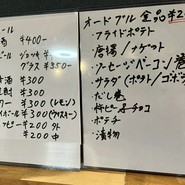 ール
¥400ー
ジョッキ
グラス ¥350ー
酒 ¥300
¥300
¥300 (レモン)
¥300 (ウイスキー)
ー ¥200 外
¥200 中
オードブル 全品 ¥2
・フライドポテト
・唐揚/ナゲット
・ソーセージベーコン巻
・サラダ(ポテト/ゴボ
・だし巻
・柿ピー チョコ
・ポテチ
・漬物